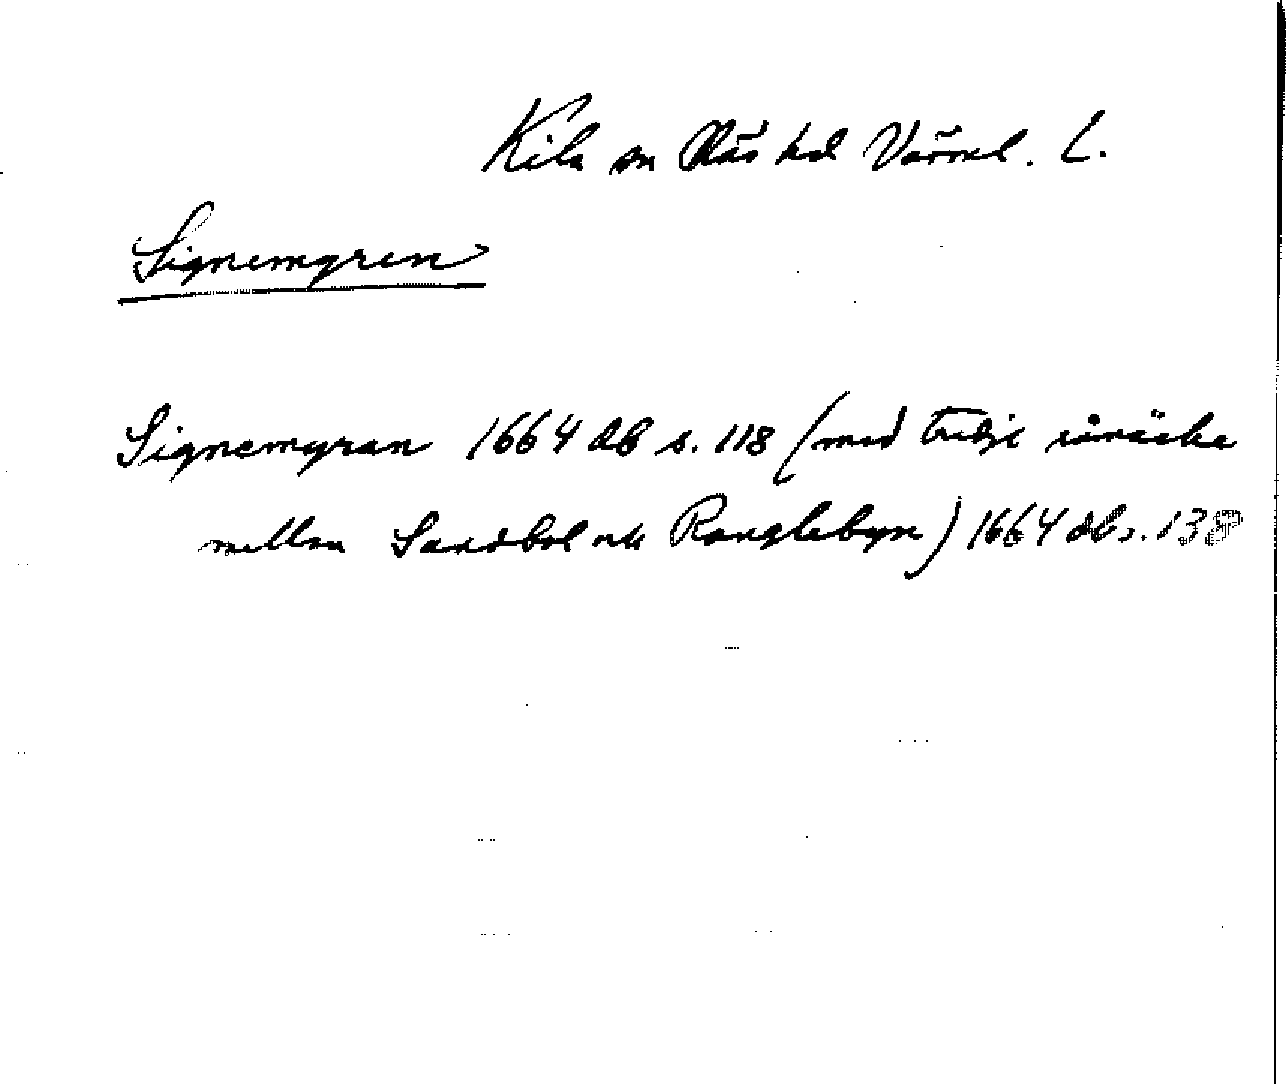 Kila sn Näs hd Värml. L.
Signemyren
Signemyran 1664 db s. 118 (med tredje råräcka
mellan Sandbol och Ranglebyn) 1664 db s. 138